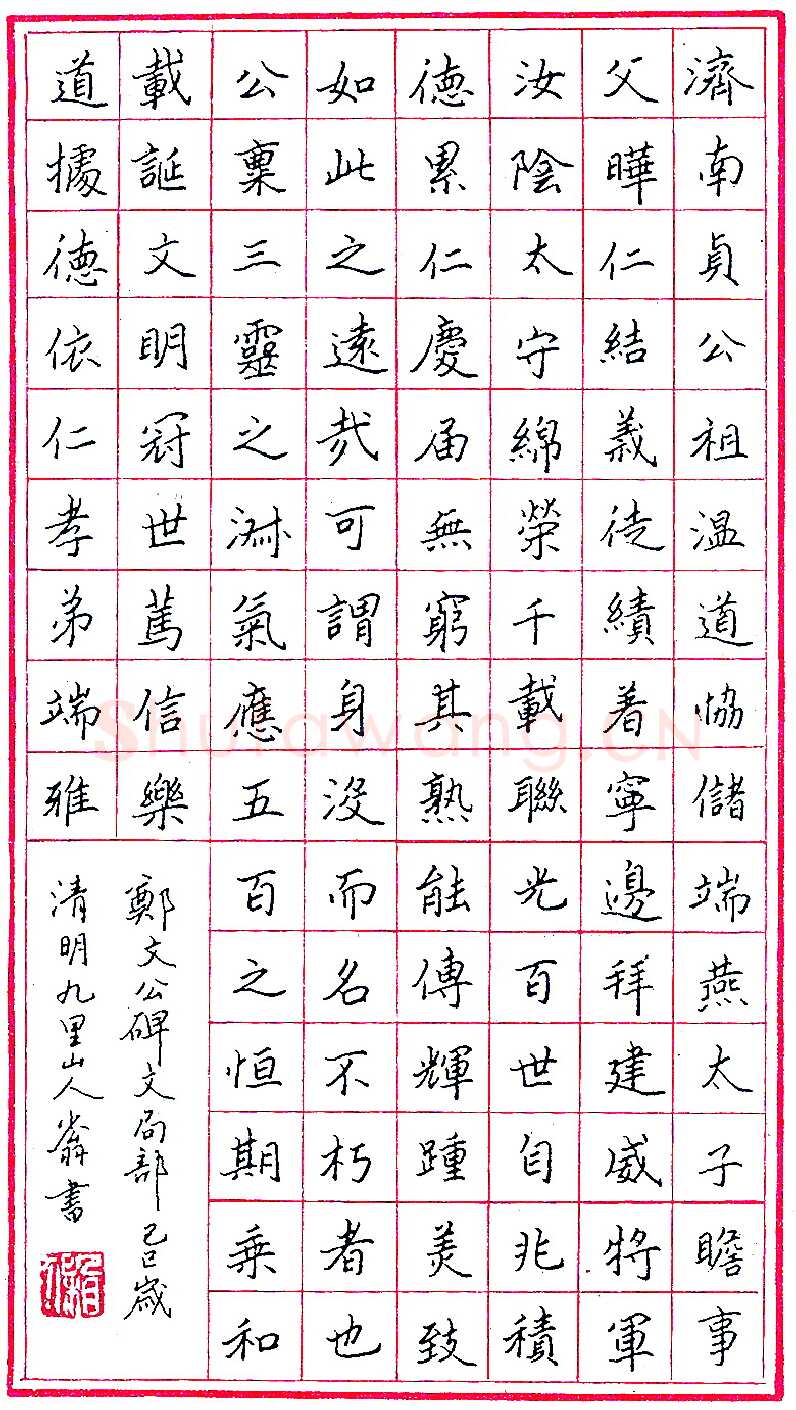 濟南貞公祖温道恊儲端燕太子瞻事
父曄仁結義徒績着寧邊拜建威將軍
汝陰太守綿榮千載聯光百世自兆積
德累仁慶届無窮其熟能傳輝踵美致
如此之遠哉可謂身沒而名不朽者也
公稟三靈之淑氣應五百之恒期乘和
載誕文明冠世篤信樂
道據德依仁孝弟端雅
鄭文公碑文局部己巳歲
清明九里山人書
Shufawang.CN